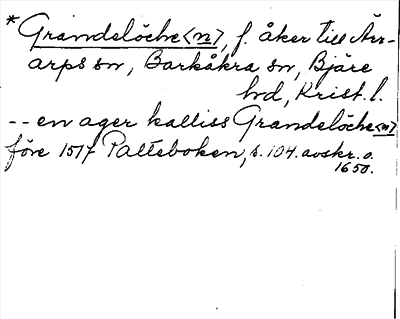 *Grandelöche<n>, f. åker till Ärr-
arps sn, Barkåkra sn, Bjäre
hd, Krist. l.
-- en ager kalliss Grandelöche<n>
före 1517 Palteboken, s. 104. avskr. o.
1650.